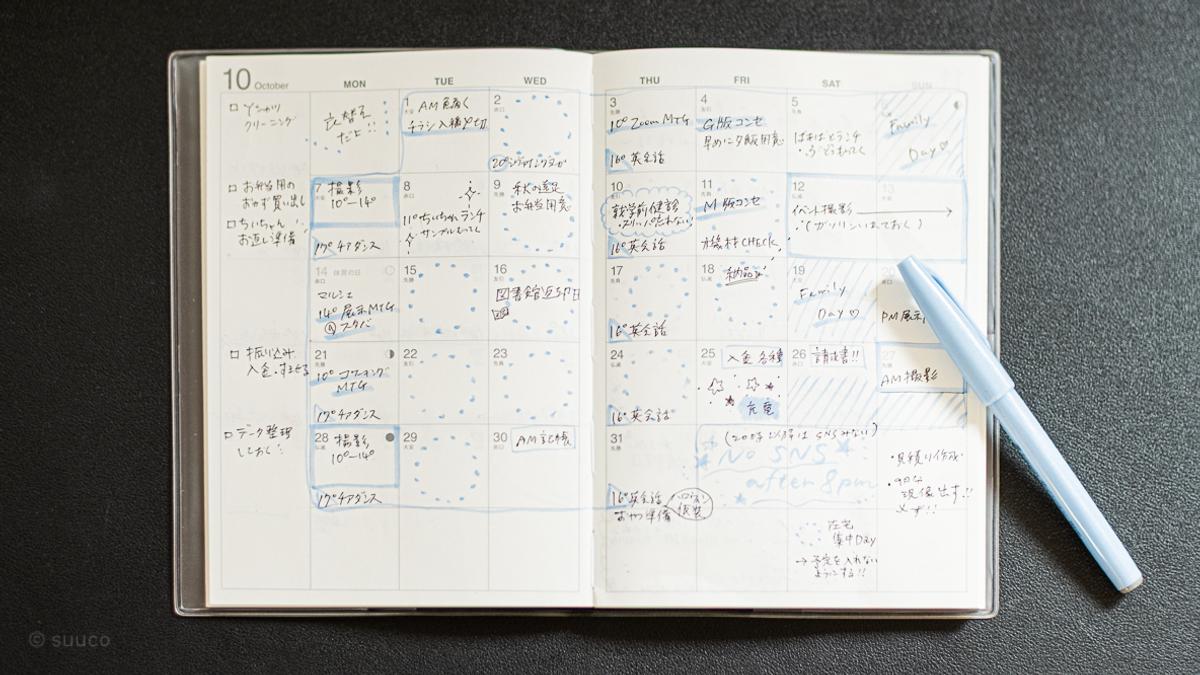 10 October
MON
TUE
WED
THU
FRI
SAT
SUN
□ Yシャツ
クリーニング
衣替え
だよ!!
1
AM 色抜く
チラシ入稿〆切
2
20°
3
10° Zoom MTG
16° 英会話
4
G版コンセ
早めに夕飯用意
5
ばぁばとランチ
6
Family
Day♡
□ お弁当用の
おかず買い出し
□ ちぃちゃん
お返し準備
7 撮影
10°–14°
17° チアダンス
8
11° ちぃちゃんランチ
9
秋の遠足
お弁当用意
10
就学前健診
・スリッパ忘れない!
16° 英会話
11
M版コンセ
機材CHECK
12
イベント撮影 →
13
14 体育の日
マルシェ
14° 展示MTG
@スタバ
15
16
図書館返却日
17
16° 英会話
18
納品
19
Family
Day♡
20
PM展示
□ 振り込み
入金
21
10°
MTG
17° チアダンス
22
23
24
16° 英会話
25
入金 各種
充電
26
請求書!!
27
AM撮影
□ データ整理
しておく
28 撮影
10°–14°
17° チアダンス
29
30
AM 記帳
31
16° 英会話
おやつ準備
ハロウィン
仮装
(20時以降はSNSみない)
No SNS
after 8pm
・見積り作成
現像出す!!
必ず!!
在宅
集中Day
→予定を入れない
ようにする!!
© suuco